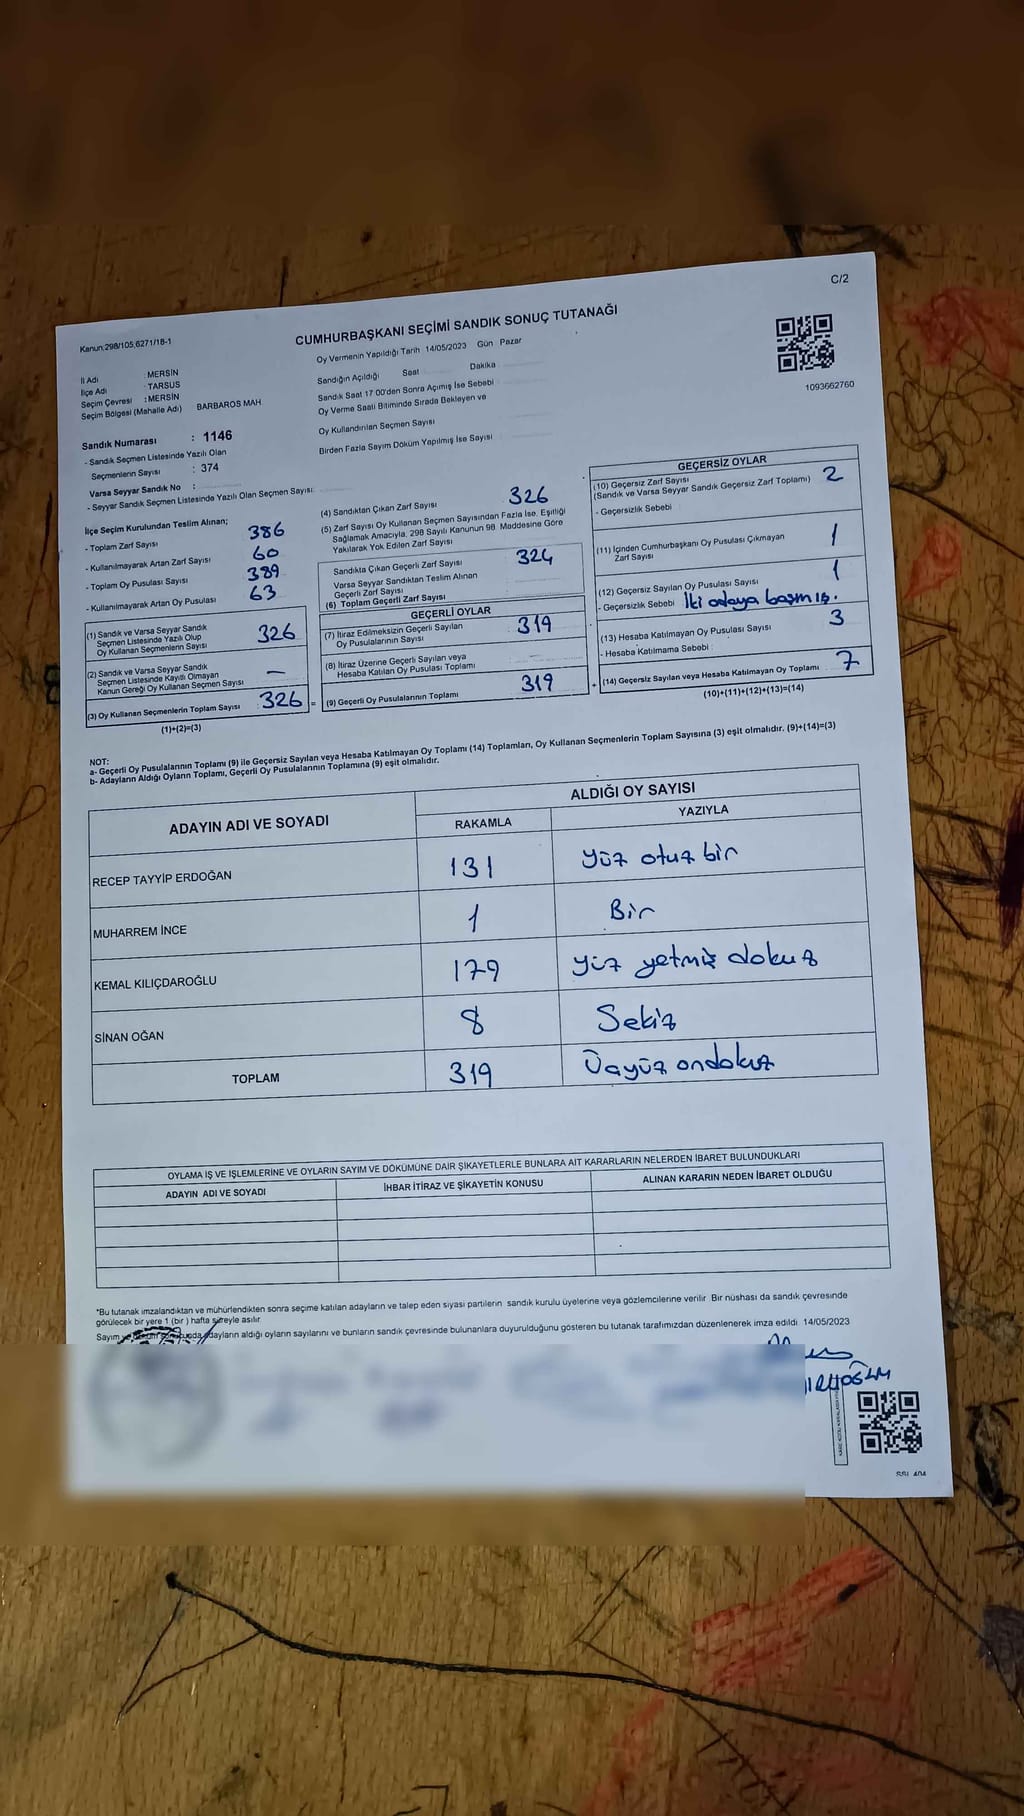 C/2
Kanun:298/105,6271/18-1
CUMHURBAŞKANI SEÇİMİ SANDIK SONUÇ TUTANAĞI
1093662760
İl Adı : MERSİN
İlçe Adı : TARSUS
Seçim Çevresi : MERSİN
Seçim Bölgesi (Mahalle Adı) BARBAROS MAH.
Sandık Numarası : 1146
- Sandık Seçmen Listesinde Yazılı Olan
Seçmenlerin Sayısı : 374
Varsa Seyyar Sandık No :
- Seyyar Sandık Seçmen Listesinde Yazılı Olan Seçmen Sayısı:
Oy Vermenin Yapıldığı Tarih 14/05/2023 Gün Pazar
Sandığın Açıldığı Saat Dakika
Sandık Saat 17 00'den Sonra Açımış İse Sebebi
Oy Verme Saati Bitiminde Sırada Bekleyen ve
Oy Kullandırılan Seçmen Sayısı
Birden Fazla Sayım Döküm Yapılmış İse Sayısı
İlçe Seçim Kurulundan Teslim Alınan;
- Toplam Zarf Sayısı 386
- Kullanılmayarak Artan Zarf Sayısı 60
- Toplam Oy Pusulası Sayısı 389
- Kullanılmayarak Artan Oy Pusulası 63
(1) Sandık ve Varsa Seyyar Sandık
Seçmen Listesinde Yazılı Olup
Oy Kullanan Seçmenlerin Sayısı 326
(2) Sandık ve Varsa Seyyar Sandık
Seçmen Listesinde Kayıtlı Olmayan
Kanun Gereği Oy Kullanan Seçmen Sayısı —
(3) Oy Kullanan Seçmenlerin Toplam Sayısı 326
(1)+(2)=(3)
(4) Sandıktan Çıkan Zarf Sayısı 326
(5) Zarf Sayısı Oy Kullanan Seçmen Sayısından Fazla İse, Eşitliği
Sağlamak Amacıyla, 298 Sayılı Kanunun 98. Maddesine Göre
Yakılarak Yok Edilen Zarf Sayısı
Sandıkta Çıkan Geçerli Zarf Sayısı 324
Varsa Seyyar Sandıktan Teslim Alınan
Geçerli Zarf Sayısı
(6) Toplam Geçerli Zarf Sayısı
GEÇERLİ OYLAR
(7) İtiraz Edilmeksizin Geçerli Sayılan
Oy Pusulalarının Sayısı 319
(8) İtiraz Üzerine Geçerli Sayılan veya
Hesaba Katılan Oy Pusulası Toplamı
= (9) Geçerli Oy Pusulalarının Toplamı 319 +
GEÇERSİZ OYLAR
(10) Geçersiz Zarf Sayısı
(Sandık ve Varsa Seyyar Sandık Geçersiz Zarf Toplamı) 2
- Geçersizlik Sebebi
(11) İçinden Cumhurbaşkanı Oy Pusulası Çıkmayan
Zarf Sayısı 1
(12) Geçersiz Sayılan Oy Pusulası Sayısı 1
- Geçersizlik Sebebi İki adaya basmış.
(13) Hesaba Katılmayan Oy Pusulası Sayısı 3
- Hesaba Katılmama Sebebi
(14) Geçersiz Sayılan veya Hesaba Katılmayan Oy Toplamı 7
(10)+(11)+(12)+(13)=(14)
NOT:
a- Geçerli Oy Pusulalarının Toplamı (9) ile Geçersiz Sayılan veya Hesaba Katılmayan Oy Toplamı (14) Toplamları, Oy Kullanan Seçmenlerin Toplam Sayısına (3) eşit olmalıdır. (9)+(14)=(3)
b- Adayların Aldığı Oyların Toplamı, Geçerli Oy Pusulalarının Toplamına (9) eşit olmalıdır.
ADAYIN ADI VE SOYADI
ALDIĞI OY SAYISI
RAKAMLA YAZIYLA
RECEP TAYYİP ERDOĞAN 131 yüz otuz bir
MUHARREM İNCE 1 Bir
KEMAL KILIÇDAROĞLU 179 yüz yetmiş dokuz
SİNAN OĞAN 8 Sekiz
TOPLAM 319 Üçyüz ondokuz
OYLAMA İŞ VE İŞLEMLERİNE VE OYLARIN SAYIM VE DÖKÜMÜNE DAİR ŞİKAYETLERLE BUNLARA AİT KARARLARIN NELERDEN İBARET BULUNDUKLARI
ADAYIN ADI VE SOYADI İHBAR İTİRAZ VE ŞİKAYETİN KONUSU ALINAN KARARIN NEDEN İBARET OLDUĞU
*Bu tutanak imzalandıktan ve mühürlendikten sonra seçime katılan adayların ve talep eden siyasi partilerin sandık kurulu üyelerine veya gözlemcilerine verilir Bir nüshası da sandık çevresinde
görülecek bir yere 1 (bir) hafta süreyle asılır.
Sayım adayların aldığı oyların sayılarını ve bunların sandık çevresinde bulunanlara duyurulduğunu gösteren bu tutanak tarafımızdan düzenlenerek imza edildi 14/05/2023